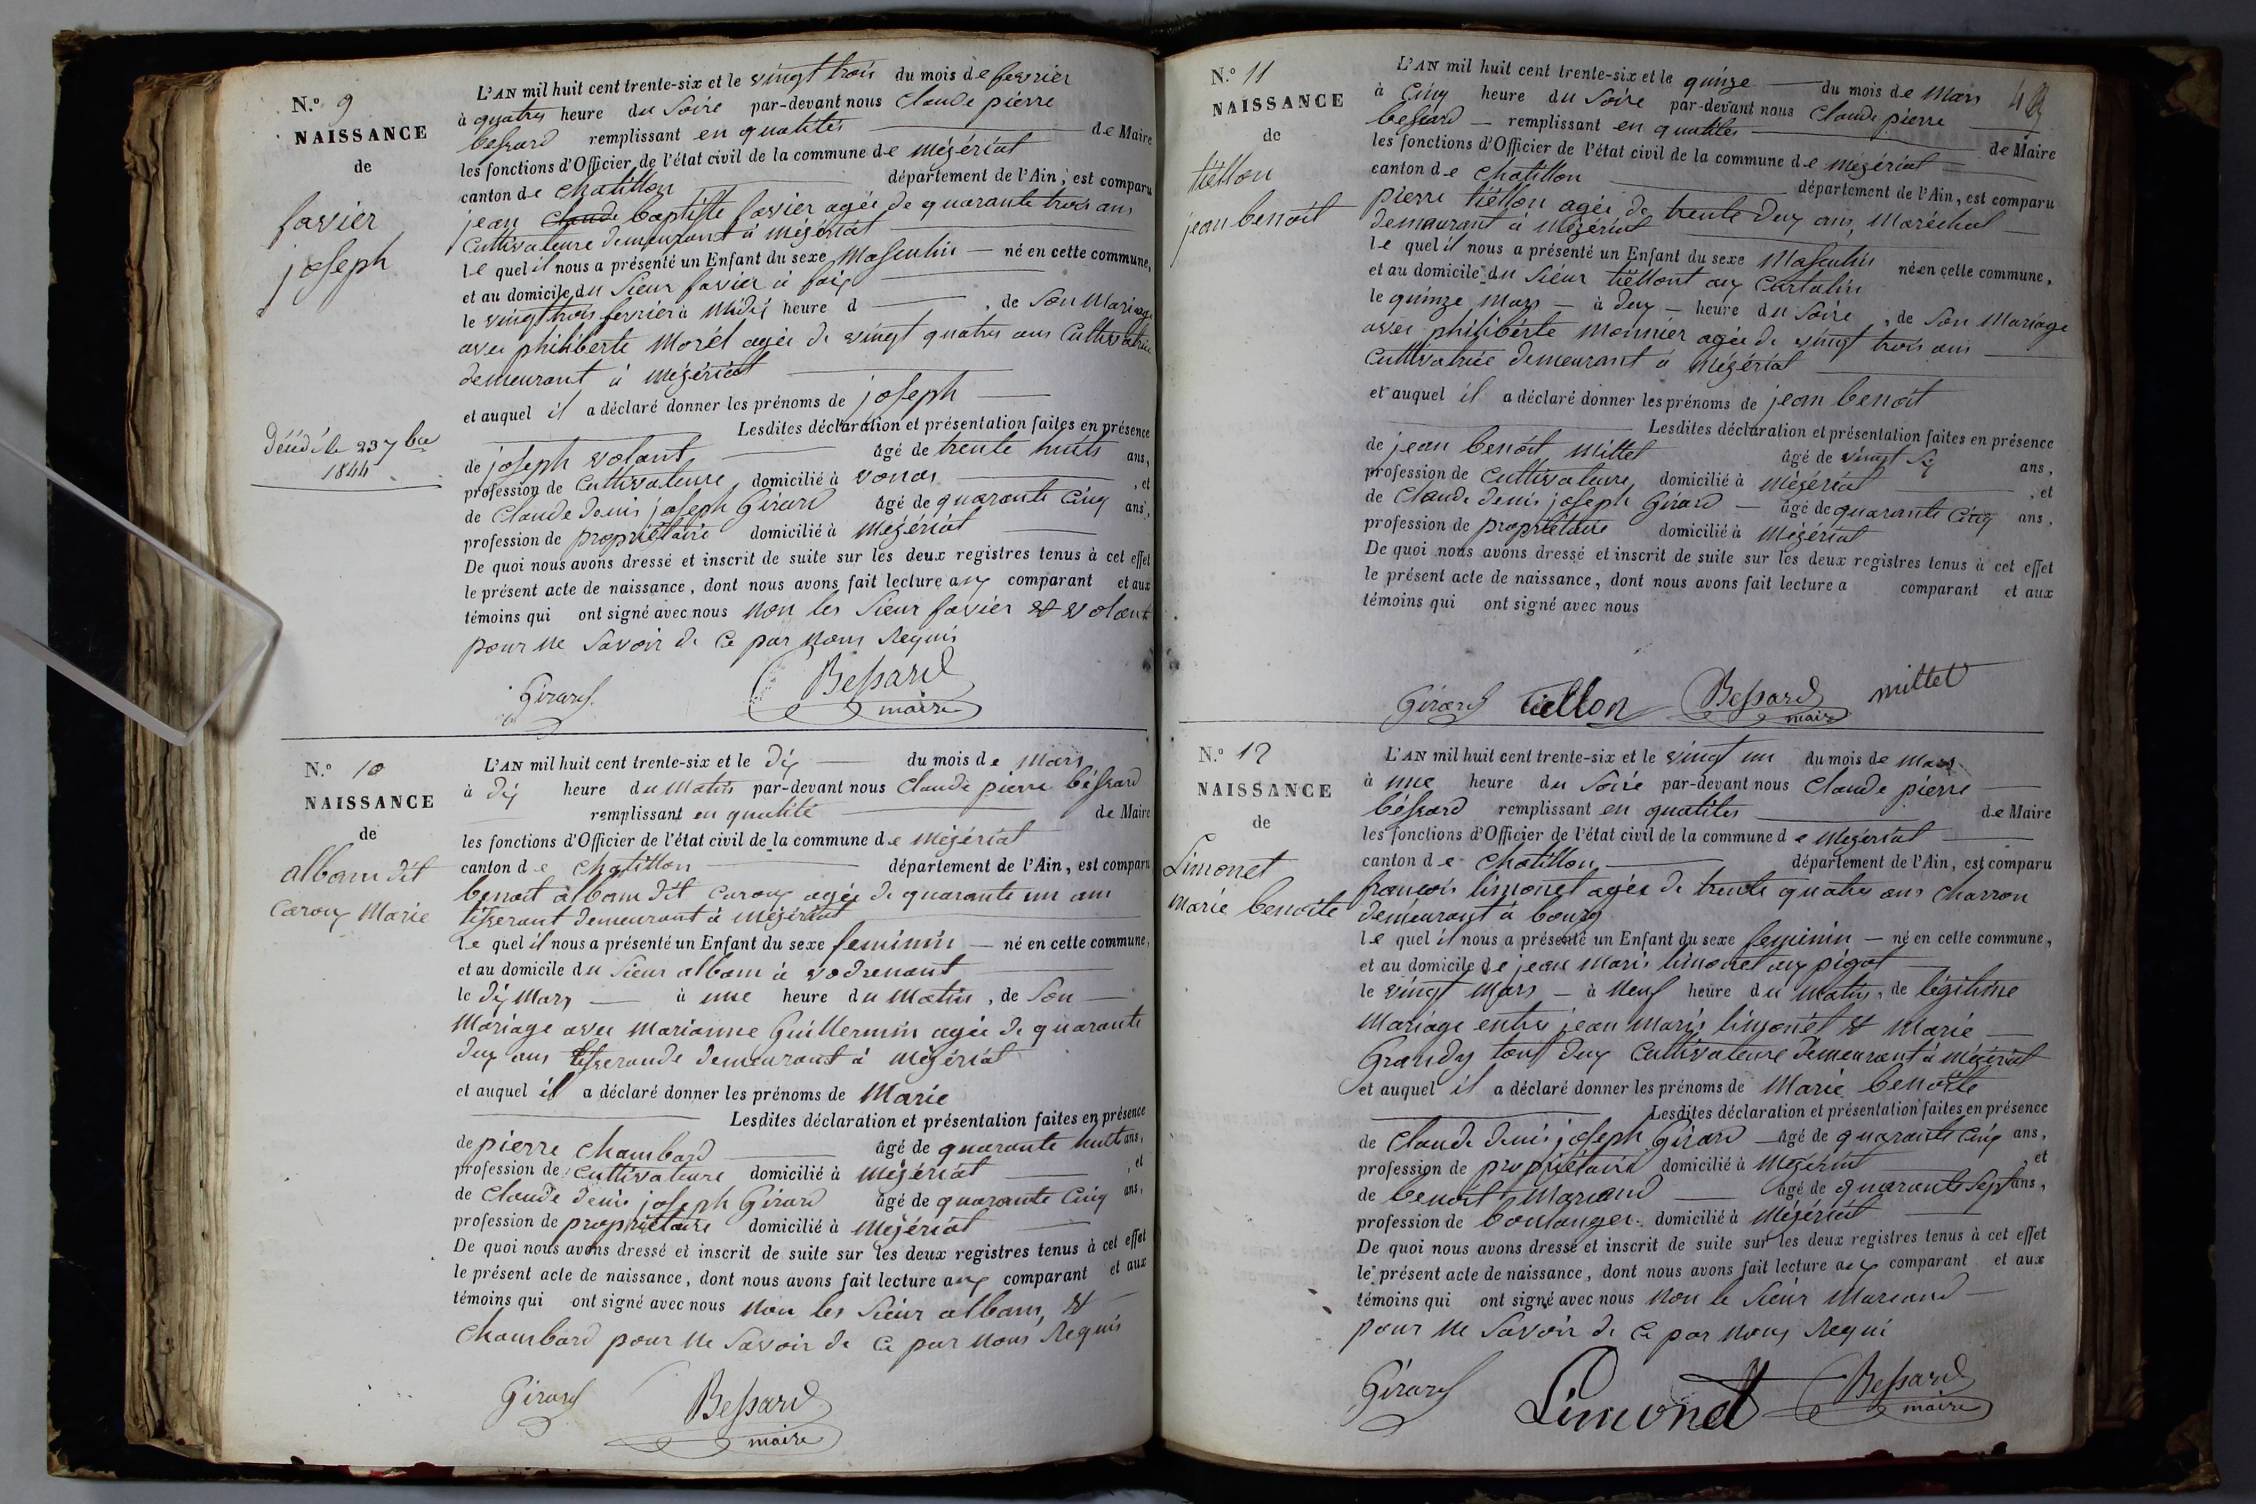 N.° 9
NAISSANCE
de
favier
joseph
Décédé le 23 7bre
1844
L'AN mil huit cent trente-six et le vingt trois du mois de fevrier
à quatres heure du soire par-devant nous Claude pierre
bessard remplissant en qualités de Maire
les fonctions d'Officier de l'état civil de la commune de mézériat
canton de chatillon département de l'Ain, est comparu
jean Claude baptiste favier agée de quarante trois ans
Cultivateure demeurant à mézériat
le quel il nous a présenté un Enfant du sexe Masculin né en cette commune,
et au domicile du Sieur favier à faix
le vingt trois fevrier à Midÿ heure d , de Son Mariage
avec philiberte Morel agée de vingt quatres ans Cultivatrice
demeurant à mézériat
et auquel il a déclaré donner les prénoms de joseph
Lesdites déclaration et présentation faites en présence
de joseph volant âgé de trente huits ans,
profession de Cultivateure domicilié à vonas , et
de Claude denis joseph Girard âgé de quarante Cinq ans,
profession de propriétaire domicilié à Mézériat
De quoi nous avons dressé et inscrit de suite sur les deux registres tenus à cet effet
le présent acte de naissance, dont nous avons fait lecture aux comparant et aux
témoins qui ont signé avec nous Non les Sieur favier & volant
pour ne Savoir de Ce par Nous Requis
Girard Bessard
maire
N.° 10
NAISSANCE
de
albam dit
caroux Marie
L'AN mil huit cent trente-six et le dix du mois de Mars
à dix heure du Matin par-devant nous Claude pierre béssard
remplissant en qualité de Maire
les fonctions d'Officier de l'état civil de la commune de mézériat
canton de chatillon département de l'Ain, est comparu
benoit albam dit caroux agée de quarante un ans
tisserant demeurant à mézériat
le quel il nous a présenté un Enfant du sexe feminin né en cette commune,
et au domicile du Sieur albam à vodrenant
le dix Mars à une heure du Matin, de Son
Mariage avec Marianne Guillermin agée de quarante
dux ans tisserande demeurant à Mézériat
et auquel il a déclaré donner les prénoms de Marie
Lesdites déclaration et présentation faites en présence
de pierre Chambard âgé de quarante huit ans,
profession de cultivateure domicilié à mézériat , et
de Claude denis joseph Girard âgé de quarante Cinq ans,
profession de propriétaire domicilié à Mézériat
De quoi nous avons dressé et inscrit de suite sur les deux registres tenus à cet effet
le présent acte de naissance, dont nous avons fait lecture aux comparant et aux
témoins qui ont signé avec nous Non les Sieur albam, &
Chambard pour Ne Savoir de Ce par Nous Requis
Girard Bessard
maire
N.° 11
NAISSANCE
de
tiellon
jean benoit
L'AN mil huit cent trente-six et le quinze du mois de Mars
à Cinq heure du Soire par-devant nous Claude pierre
bessard remplissant en qualités de Maire
les fonctions d'Officier de l'état civil de la commune de mézériat
canton de chatillon département de l'Ain, est comparu
pierre tiellon agée de trente dux ans, Maréchal
demeurant à Mézériat
le quel il nous a présenté un Enfant du sexe Masculin né en cette commune,
et au domicile du Siéur tiellont aux Cartalin
le quinze Mars à dux heure du Soire, de Son Mariage
avec philiberte Monnier agée de vingt trois ans
Cultivatrice demeurant à Mézériat
et auquel il a déclaré donner les prénoms de jean benoit
Lesdites déclaration et présentation faites en présence
de jean benoit Millet âgé de vingt Six ans,
profession de Cultivateure domicilié à Mézériat , et
de Claude denis joseph Girard âgé de quarante Cinq ans,
profession de propriétaire domicilié à Mézériat
De quoi nous avons dressé et inscrit de suite sur les deux registres tenus à cet effet
le présent acte de naissance, dont nous avons fait lecture a comparant et aux
témoins qui ont signé avec nous
Girard tiellon Bessard millet
maire
N.° 12
NAISSANCE
de
Limonet
Marie benoite
L'AN mil huit cent trente-six et le vingt un du mois de Mars
à une heure du Soire par-devant nous Claude pierre
béssard remplissant en qualités de Maire
les fonctions d'Officier de l'état civil de la commune de Mézériat
canton de chatillon département de l'Ain, est comparu
francois limonet agée de trente quatres ans charron
demeurant à bourg
le quel il nous a présenté un Enfant du sexe feminin né en cette commune,
et au domicile de jean Marie limonet aux pigot
le vingt Mars à Neuf heure du Matin, de légitime
Mariage entre jean Marie limonet & Marie
Grandy tous dux Cultivateure demeurant à mézériat
et auquel il a déclaré donner les prénoms de Marie benoite
Lesdites déclaration et présentation faites en présence
de Claude denis joseph Girard âgé de quarante Cinq ans,
profession de propriétaire domicilié à Mézériat , et
de benoit Marcand âgé de quarante Sept ans,
profession de boulanger domicilié à Mézériat
De quoi nous avons dressé et inscrit de suite sur les deux registres tenus à cet effet
le présent acte de naissance, dont nous avons fait lecture aux comparant et aux
témoins qui ont signé avec nous Non le Sieur Marcand
pour Ne Savoir de Ce par Nous Requi
Girard Limonet Bessard
maire